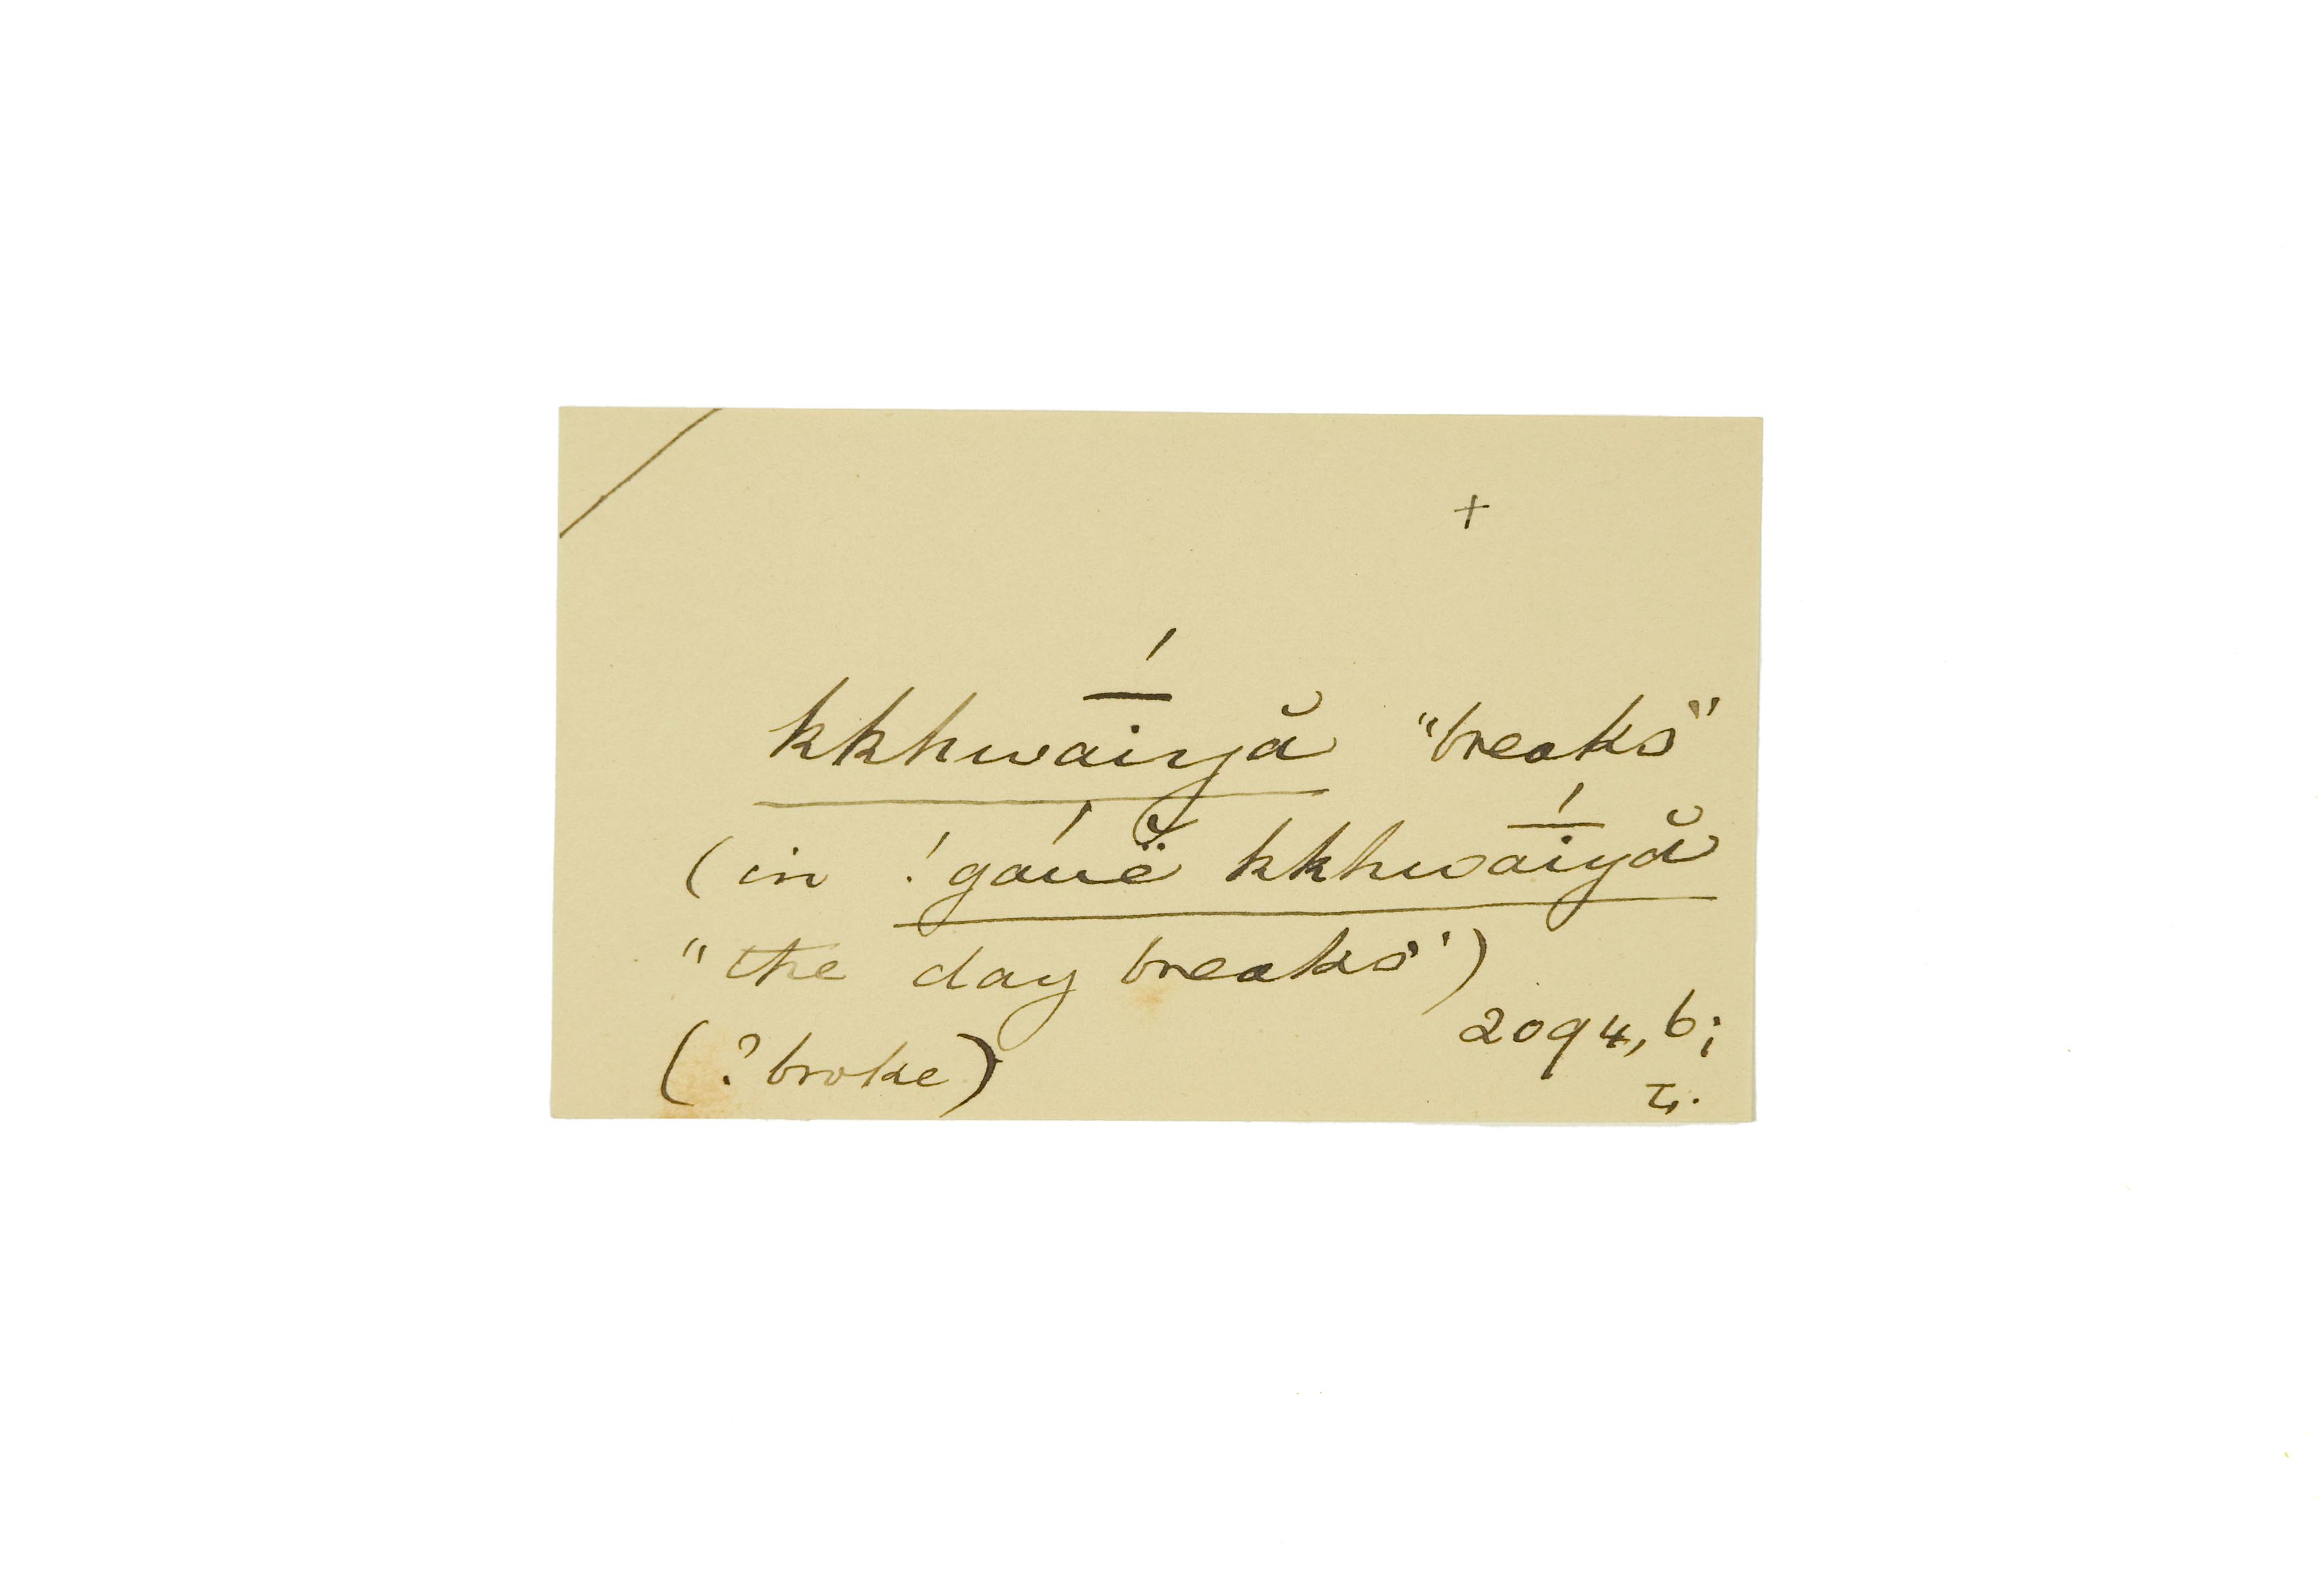 +
kkhwā́iyă "breaks"
(in !gáuë̆ kkhwā́iyă
"the day breaks")
(? broke) 2094, b;